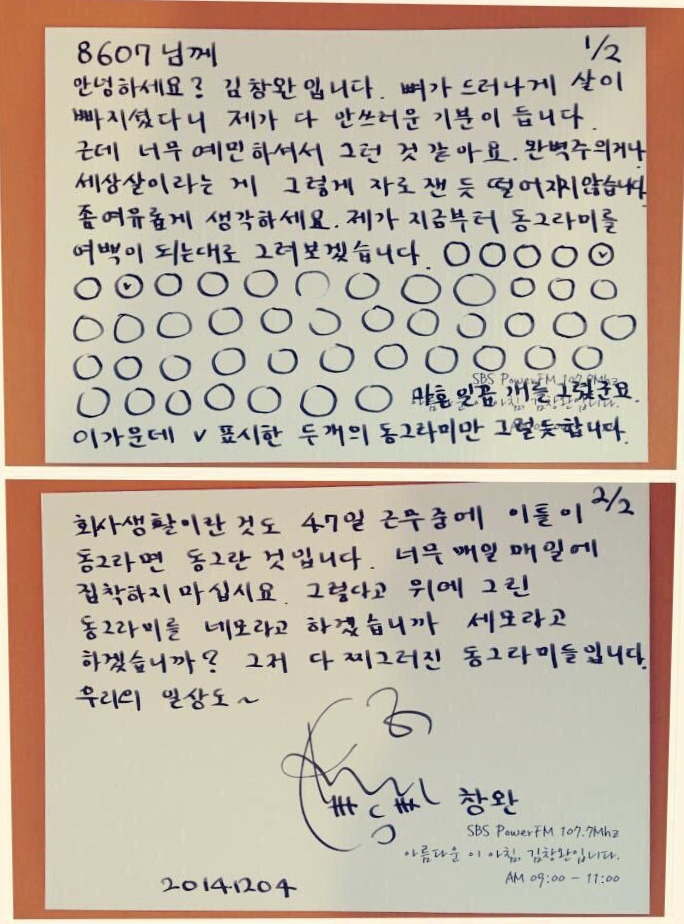 1/2
8607님께
안녕하세요? 김창완입니다. 뼈가 드러나게 살이
빠지셨다니 제가 다 안쓰러운 기분이 듭니다.
근데 너무 예민하셔서 그런 것 같아요. 완벽주의거나
세상살이라는 게 그렇게 자로 잰 듯 떨어지지 않습니다
좀 여유롭게 생각하세요. 제가 지금부터 동그라미를
여백이 되는대로 그려보겠습니다.
SBS PowerFM 107.7Mhz
마흔일곱 개를 그렸군요.
이 가운데 v 표시한 두개의 동그라미만 그럴듯합니다.
2/2
회사생활이란 것도 47일 근무 중에 이틀이
동그라면 동그란 것입니다. 너무 매일 매일에
집착하지 마십시요. 그렇다고 위에 그린
동그라미를 네모라고 하겠습니까 세모라고
하겠습니까? 그저 다 찌그러진 동그라미들입니다.
우리의 일상도~
창완
SBS PowerFM 107.7Mhz
아름다운 이 아침, 김창완입니다.
AM 09:00 - 11:00
20141204